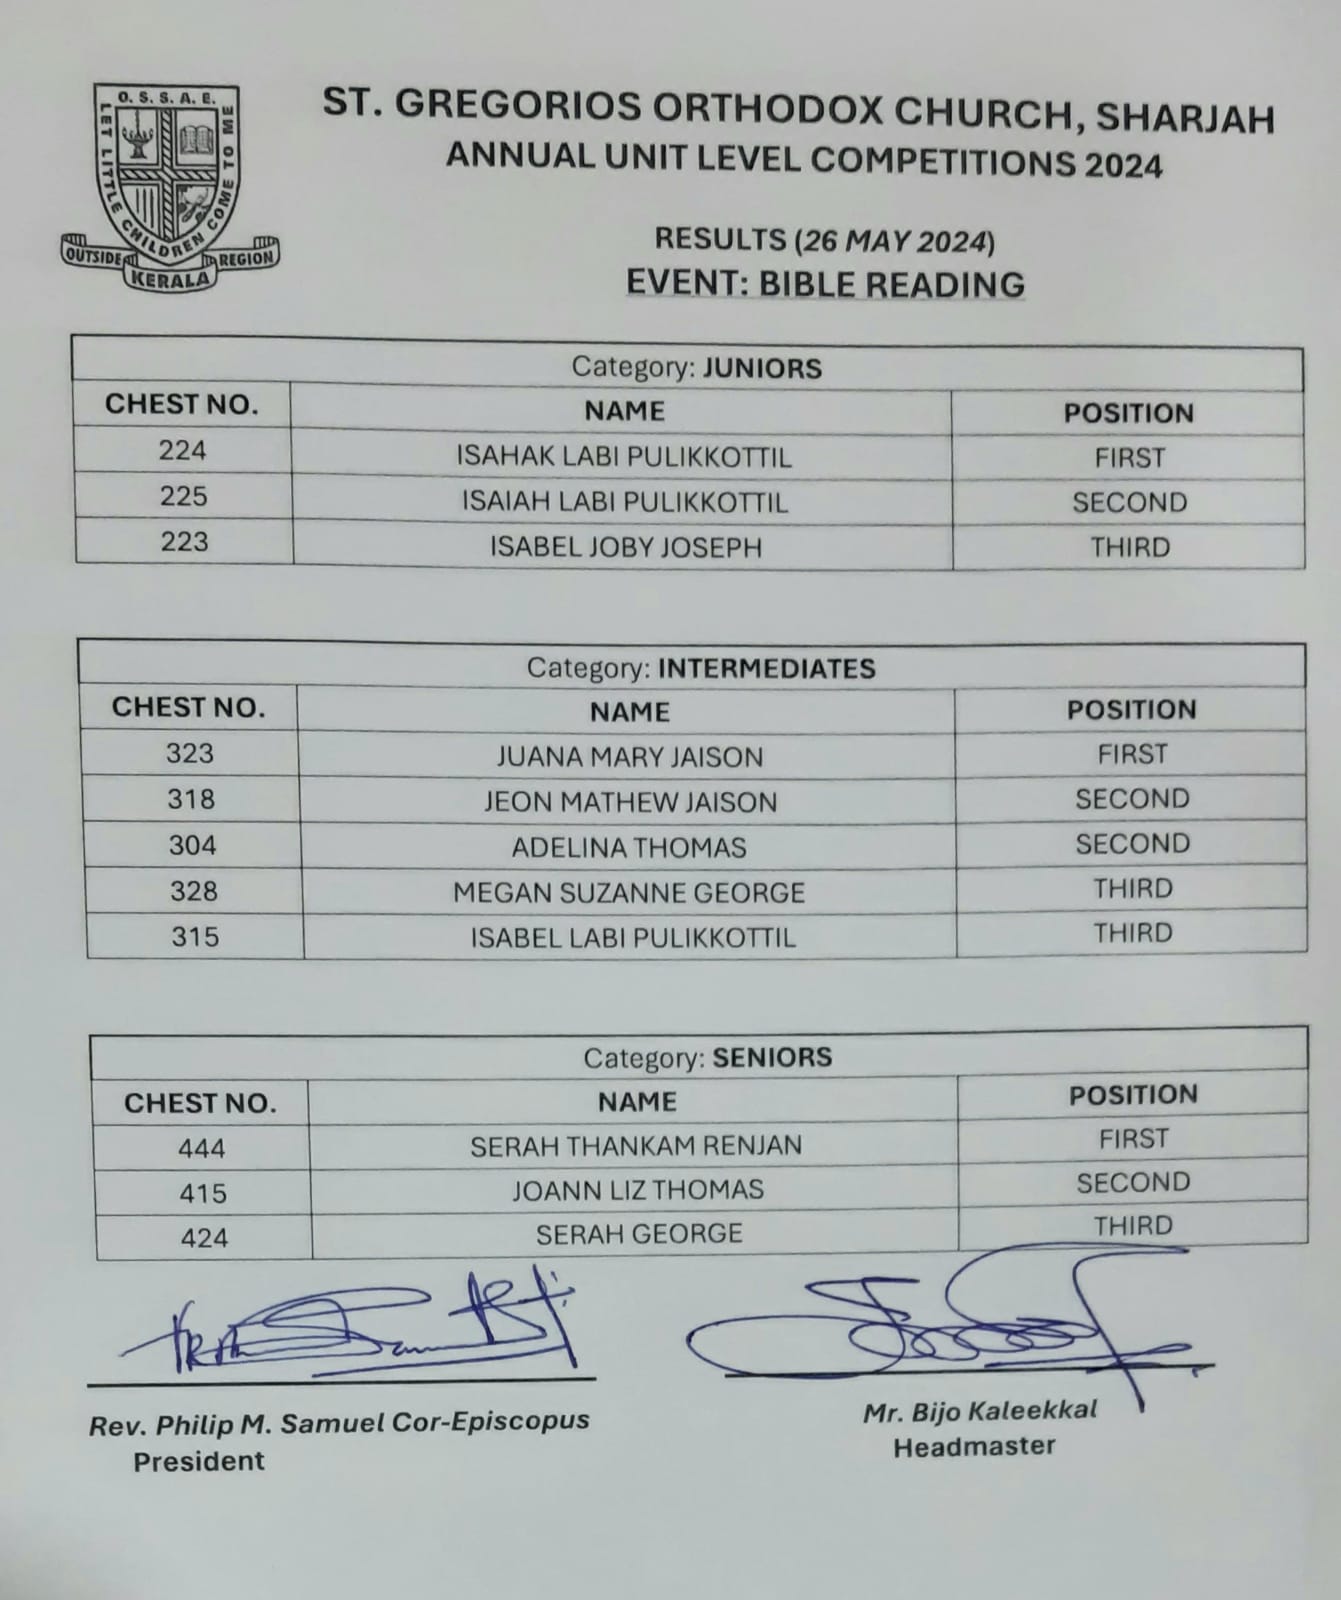 O. S. S. A. E.
LET LITTLE CHILDREN COME TO ME
OUTSIDE KERALA REGION
ST. GREGORIOS ORTHODOX CHURCH, SHARJAH
ANNUAL UNIT LEVEL COMPETITIONS 2024
RESULTS (26 MAY 2024)
EVENT: BIBLE READING
Category: JUNIORS
CHEST NO. NAME POSITION
224 ISAHAK LABI PULIKKOTTIL FIRST
225 ISAIAH LABI PULIKKOTTIL SECOND
223 ISABEL JOBY JOSEPH THIRD
Category: INTERMEDIATES
CHEST NO. NAME POSITION
323 JUANA MARY JAISON FIRST
318 JEON MATHEW JAISON SECOND
304 ADELINA THOMAS SECOND
328 MEGAN SUZANNE GEORGE THIRD
315 ISABEL LABI PULIKKOTTIL THIRD
Category: SENIORS
CHEST NO. NAME POSITION
444 SERAH THANKAM RENJAN FIRST
415 JOANN LIZ THOMAS SECOND
424 SERAH GEORGE THIRD
Rev. Philip M. Samuel Cor-Episcopus Mr. Bijo Kaleekkal
President Headmaster